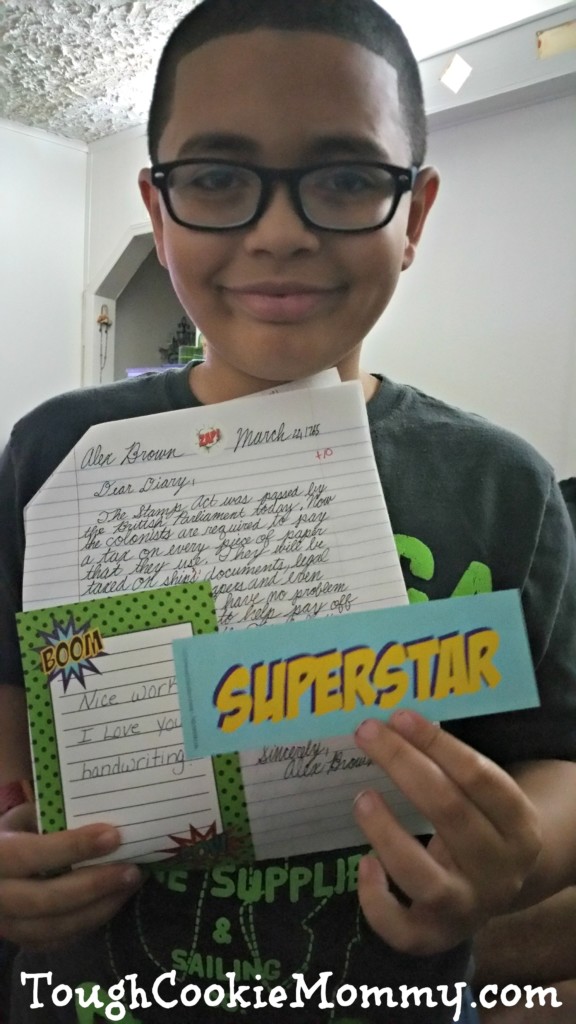 Alex Brown ZAP! March 22, 1765
+10
Dear Diary,
The Stamp Act was passed by
the British Parliament today. Now
the colonists are required to pay
a tax on every piece of paper
that they use. They will be
taxed on ships' documents, legal
apers and even
have no problem
to help pay off
BOOM
Nice work
I Love you
handwriting
SUPERSTAR
Sincerely,
Alex Brown
E SUPPLIE
&
SAILING
ToughCookieMommy.com